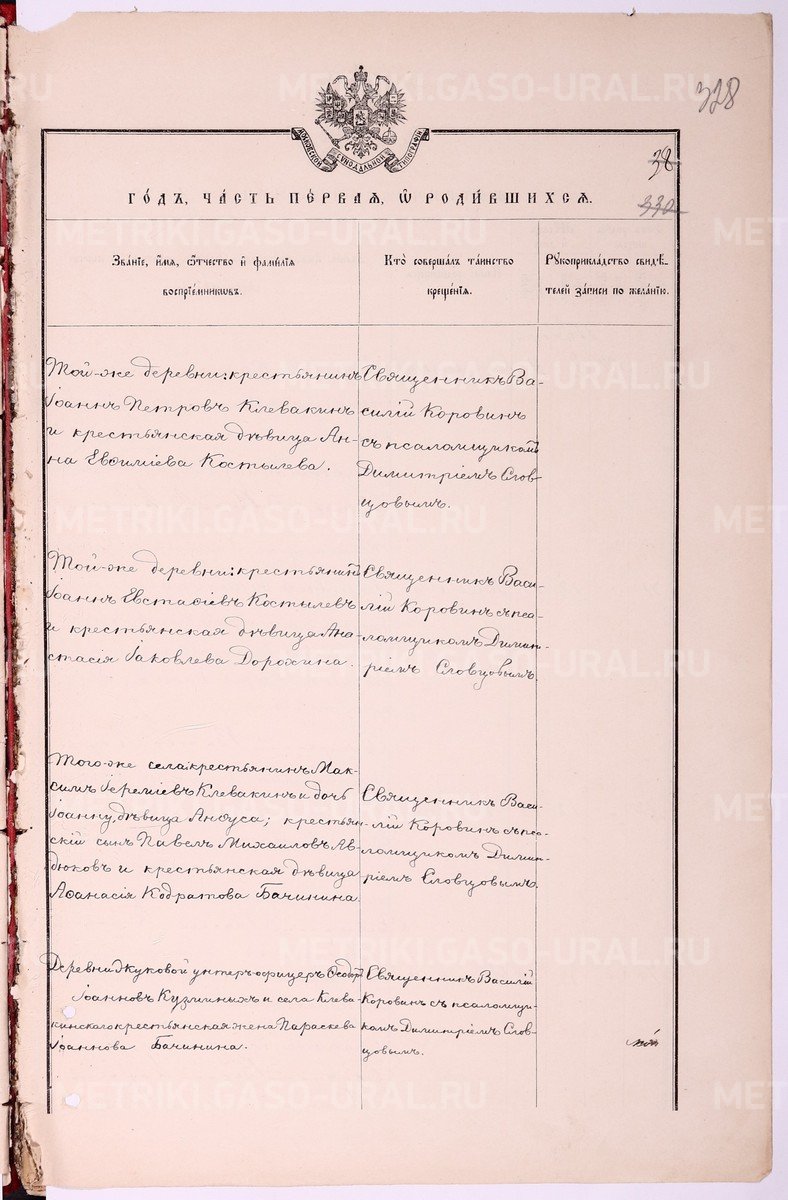 328
МОСКОВСКОЙ СУНОДАЛЬНОЙ ТИПОГРАФІИ
38
330
ГО́ДЪ, ЧА́СТЬ ПЕ́РВАЯ, Ѡ҆ РОДИ́ВШИХСЯ.
Зва́нїе, и҆́мя, ѻ҆́тчество и҆ фами́лїя
воспрїе́мникѡвъ.
Кто̀ соверша́лъ та́инство
креще́нїя.
Рꙋкоприкла́дство свидѣ́-
телей за́писи по жела́нїю.
Той-же деревни: крестьянинъ
Іоаннъ Петровъ Клевакинъ
и крестьянская дѣвица Ан-
на Евѳиміева Костылева.
Священникъ Ва-
силій Коровинъ
съ псаломщикомъ
Димитріемъ Слов-
цовымъ.
Той-же деревни: крестьянинъ
Іоаннъ Евстаѳіевъ Костылевъ
и крестьянская дѣвица Ана-
стасія Іаковлева Дорохина.
Священникъ Васи-
лій Коровинъ съ пса-
ломщикомъ Димит-
ріемъ Словцовымъ.
Того-же села: крестьянинъ Мак-
симъ Іереміевъ Клевакинъ и дочь
Іоанну, дѣвица Анѳуса; крестьян-
скій сынъ Павелъ Михаиловъ Ав-
дюковъ и крестьянская дѣвица
Аѳанасія Кодратова Бачинина
Священникъ Васи-
лій Коровинъ съ пса-
ломщикомъ Димит-
ріемъ Словцовымъ.
Деревни Жуковой унтеръ-офицеръ Ѳеодоръ
Іоанновъ Кузминыхъ и села Клева-
кинскаго крестьянская жена Параскева
Іоаннова Бачинина.
Священникъ Василій
Коровинъ съ псаломщи-
комъ Димитріемъ Слов-
цовымъ.
METRIKI.GASO-URAL.RU